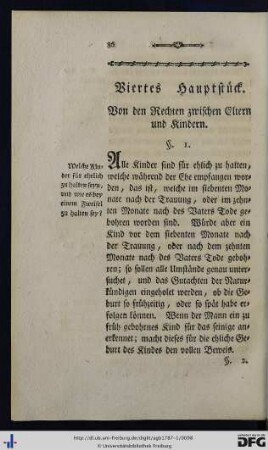 86
Viertes Hauptstück.
Von den Rechten zwischen Eltern
und Kindern.
§. 1.
Welche Kin-
der für ehelich
zu halten seyn,
und wie es bey
einem Zweifel
zu halten sey?
Alle Kinder sind für ehlich zu halten,
welche während der Ehe empfangen wor-
den, das ist, welche im siebenten Mo-
nate nach der Trauung, oder im zehn-
ten Monate nach des Vaters Tode ge-
bohren worden sind. Würde aber ein
Kind vor dem siebenten Monate nach
der Trauung, oder nach dem zehnten
Monate nach des Vaters Tode geboh-
ren; so sollen alle Umstände genau unter-
suchet, und das Gutachten der Natur-
kündigen eingeholet werden, ob die Ge-
burt so frühzeitig, oder so spät habe er-
folgen können. Wenn der Mann ein zu
früh gebohrnes Kind für das seinige an-
erkennet; macht dieses für die ehliche Ge-
burt des Kindes den vollen Beweis.
§. 2.
http://dl.ub.uni-freiburg.de/diglit/jgb1787-1/0098
© Universitätsbibliothek Freiburg
gefördert durch die
DFG